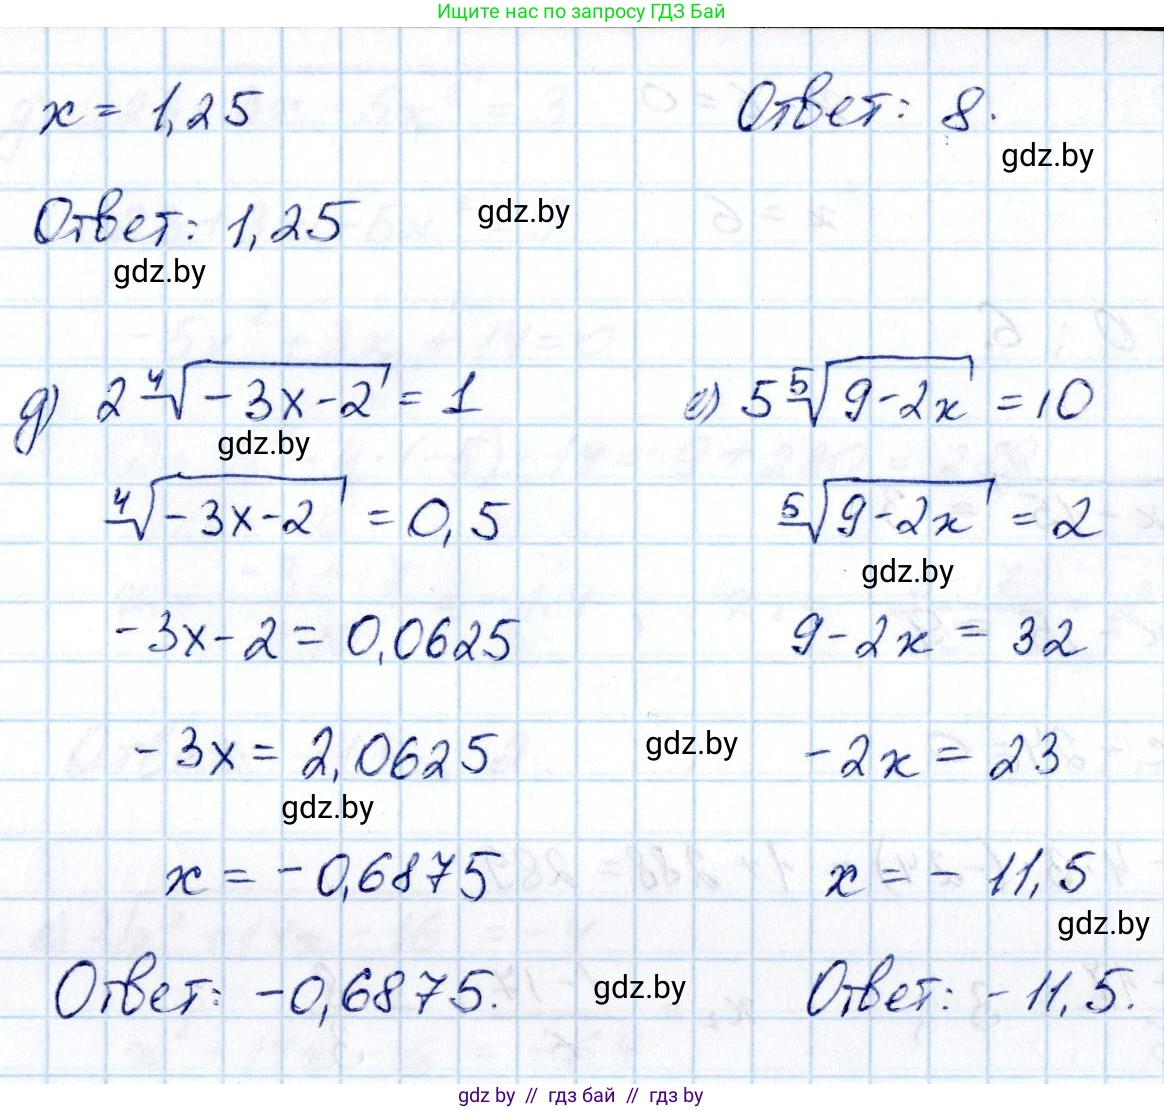 Ищите нас по запросу ГДЗ Бай
x = 1,25
Ответ: 8.
gdz.by
Ответ: 1,25
gdz.by
gdz.by
д) 2 ⁴√(-3x-2) = 1
gdz.by
⁴√(-3x-2) = 0,5
-3x-2 = 0,0625
-3x = 2,0625
gdz.by
x = -0,6875
Ответ: -0,6875.
gdz.by
е) 5 ⁵√(9-2x) = 10
⁵√(9-2x) = 2
gdz.by
9-2x = 32
gdz.by
-2x = 23
x = -11,5
gdz.by
Ответ: -11,5.
gdz.by // гдз бай // гдз.by